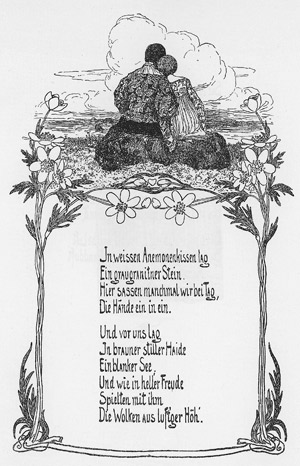 In weissen Anemonenkissen lag
Ein graugranitner Stein.
Hier sassen manchmal wir bei Tag,
Die Hände ein in ein.
Und vor uns lag
In brauner stiller Haide
Ein blanker See,
Und wie in heller Freude
Spielten mit ihm
Die Wolken aus luftiger Höh'.